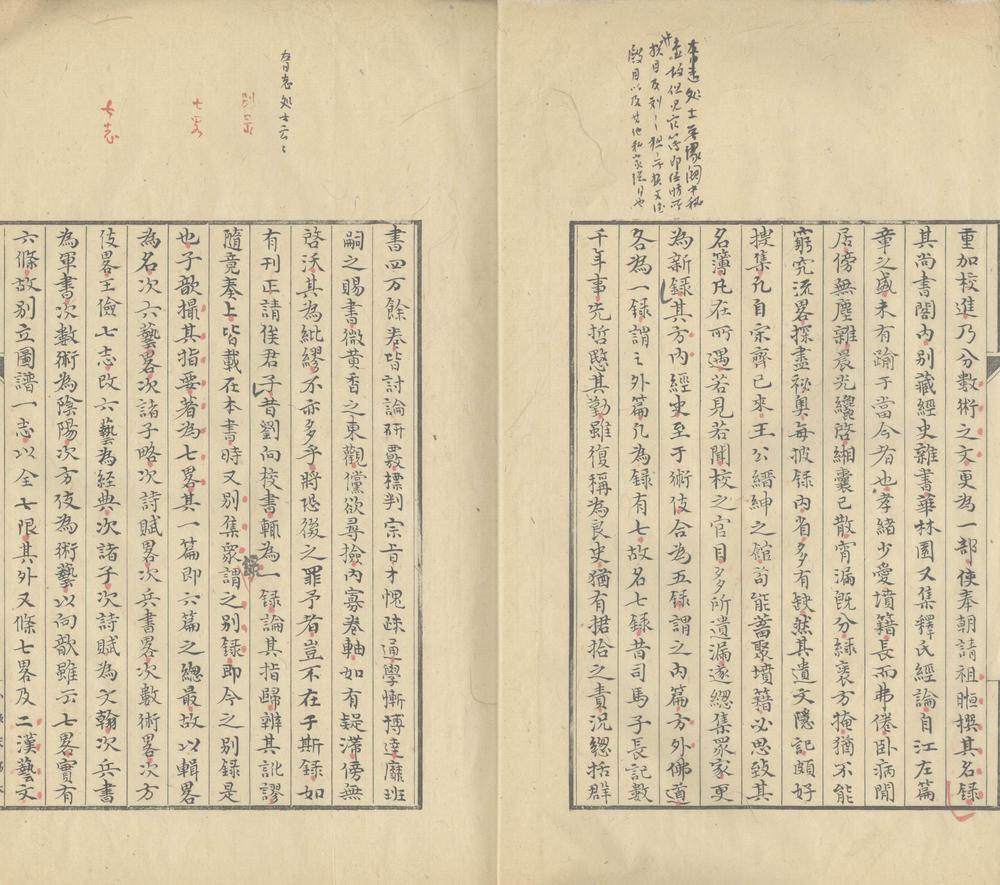 重加校進乃分數術之文更為一部使奉朝請祖暅撰其名錄
其尚書閣內別藏經史雜書華林園又集釋氏經論自江左篇
章之盛未有踰于當今者也孝緒少愛墳籍長而弗倦卧病閒
居傍無塵雜晨光纔啓緗囊已散宵漏既分綠袠方掩猶不能
窮究流畧探盡祕奧每披錄內省多有缺然其遺文隱記頗好
搜集凡自宗齊已來王公縉紳之館苟能蓄聚墳籍必思致其
名簿凡在所遇若見若聞校之官目多所遺漏遂緫集眾家更
為新錄其方內經史至于術伎合為五錄謂之內篇方外佛道
各為一錄謂之外篇凡為錄有七故名七錄昔司馬子長記數
千年事先哲愍其勤雖復稱為良史猶有捃拾之責況緫括群
書四万餘卷皆討論研覈標判宗旨才愧疎通學慚博達靡班
嗣之賜書微黃香之東觀儻欲尋撿內寡卷軸如有疑滯傍無
啓沃其為紕繆不亦多乎將恐後之罪予者豈不在于斯錄如
有刊正請俟君子昔劉向校書輒為一錄論其指歸辨其訛謬
隨竟奏上皆載在本書時又別集眾錄謂之別錄即今之別錄是
也子歆撮其指要著為七畧其一篇即六篇之緫最故以輯畧
為名次六藝畧次諸子略次詩賦畧次兵書畧次數術畧次方
伎畧王儉七志改六藝為經典次諸子次詩賦為文翰次兵書
為軍書次數術為陰陽次方伎為術藝以向歆雖云七畧實有
六條故別立圖譜一志以全七限其外又條七畧及二漢藝文
別彔
七畧
七志